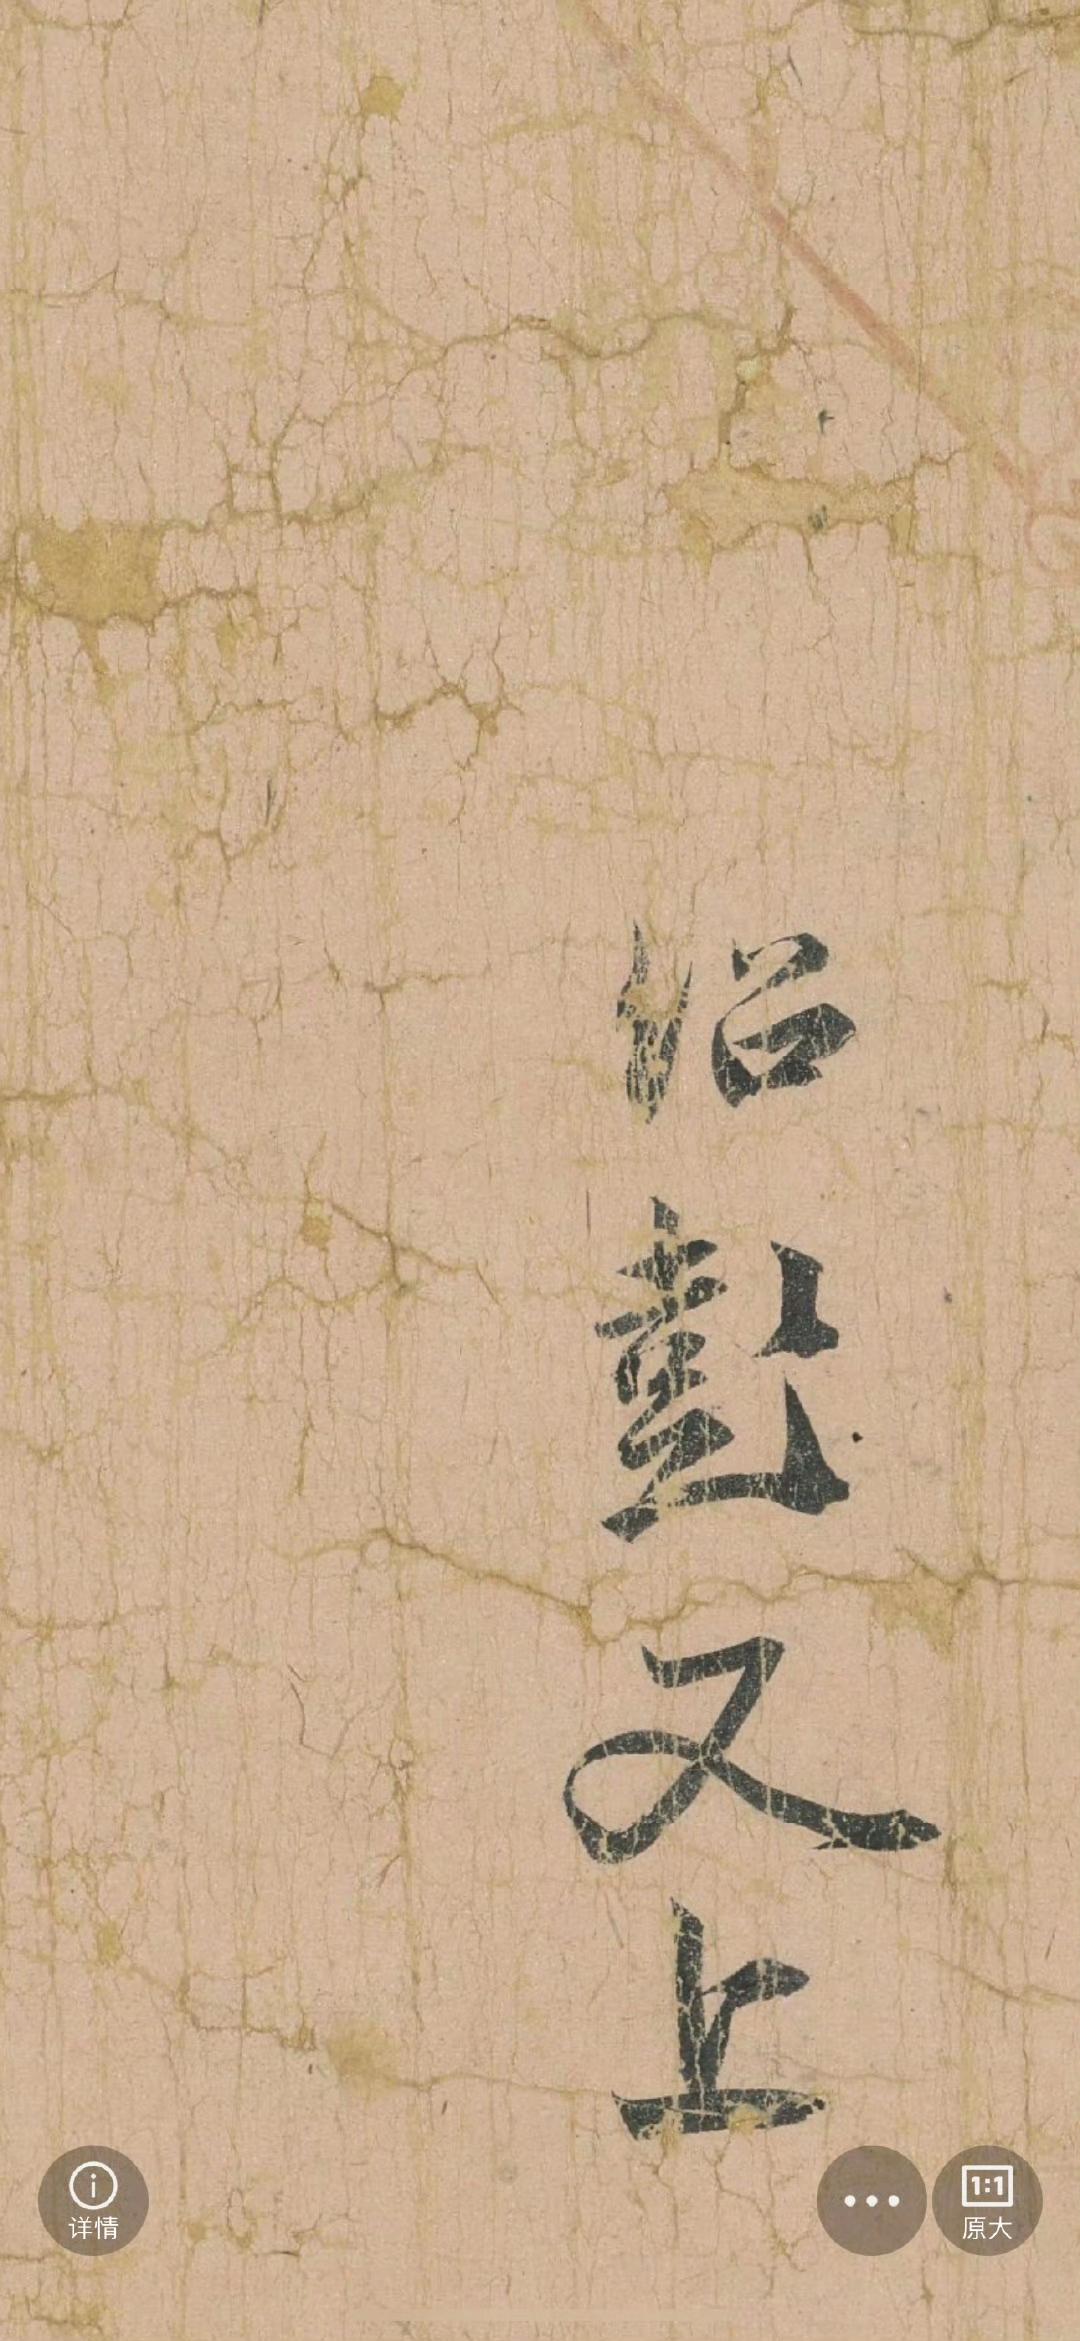 紹彭又上
详情
1:1
原大